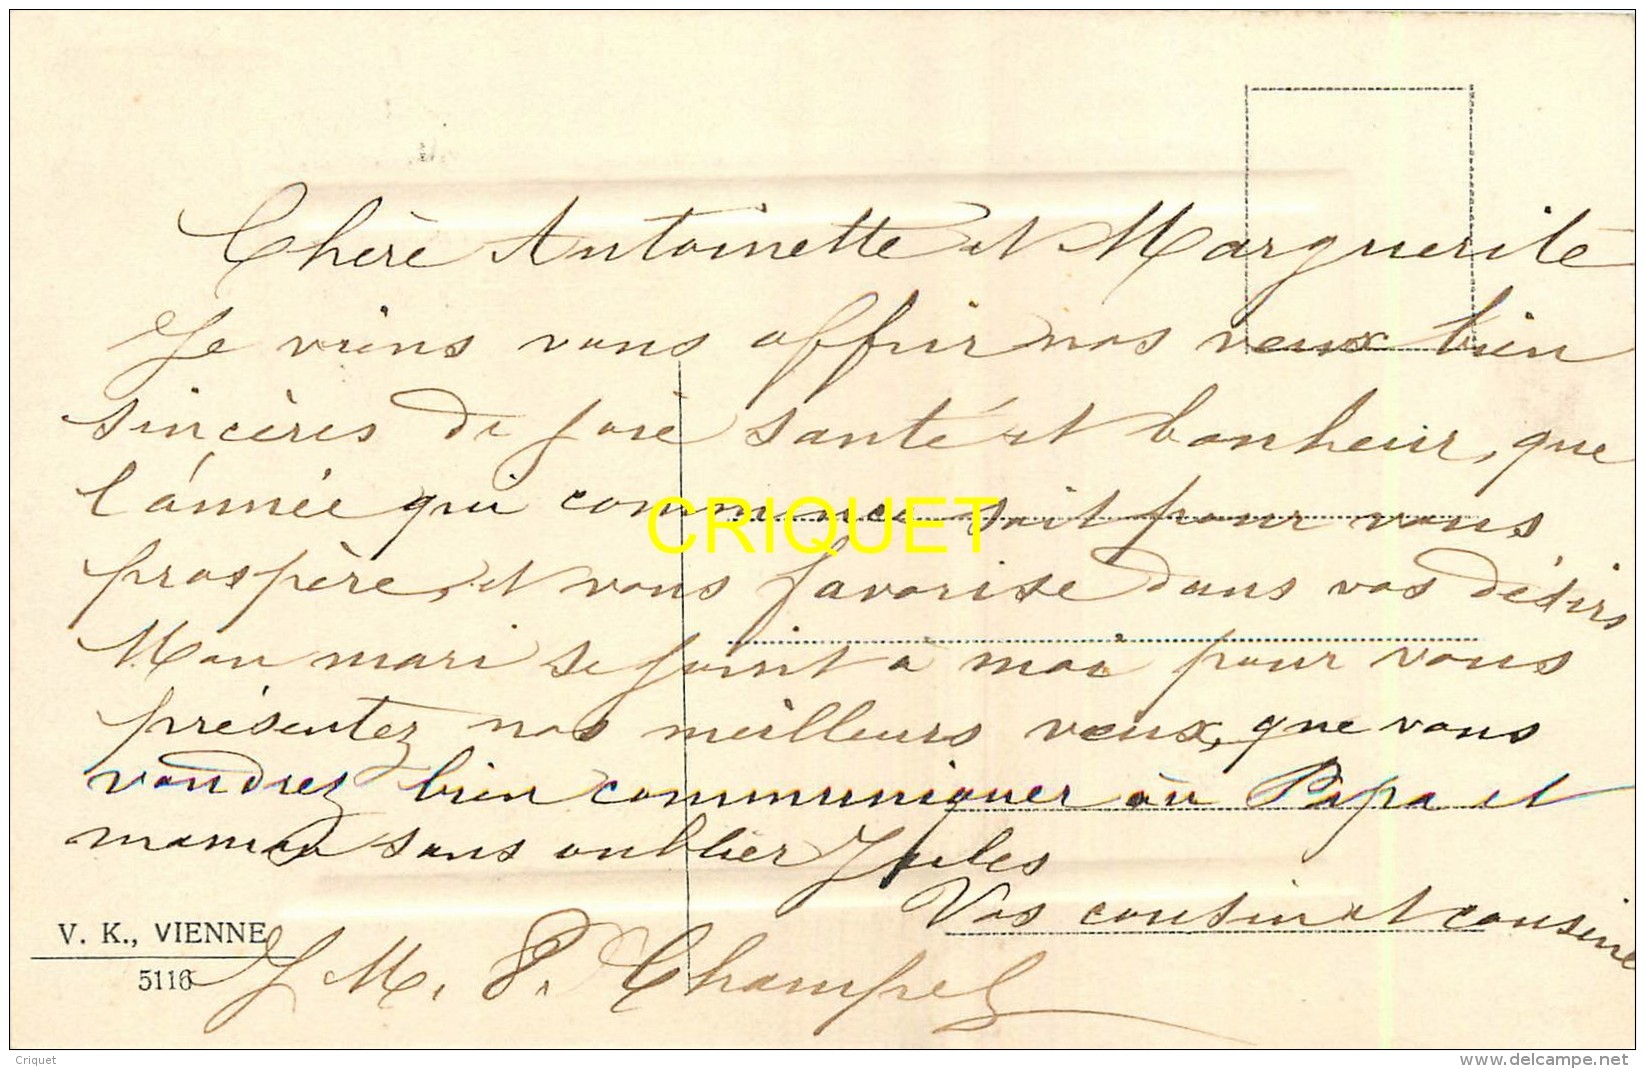 Chère Antoinette et Marguerite
Je viens vous offrir nos veux bien
sincères de joie santé et bonheur, que
l'année qui commence soit pour vous
CRIQUET
prospère, et vous favorise dans vos désirs
Mon mari se joint à moi pour vous
présentez nos meilleurs veux, que vous
voudrez bien communiquer au Papa et
maman sans oublier Jules
Vos cousin et cousine
V. K., VIENNE
5116
J M. P. Champel
Criquet
www.delcampe.net